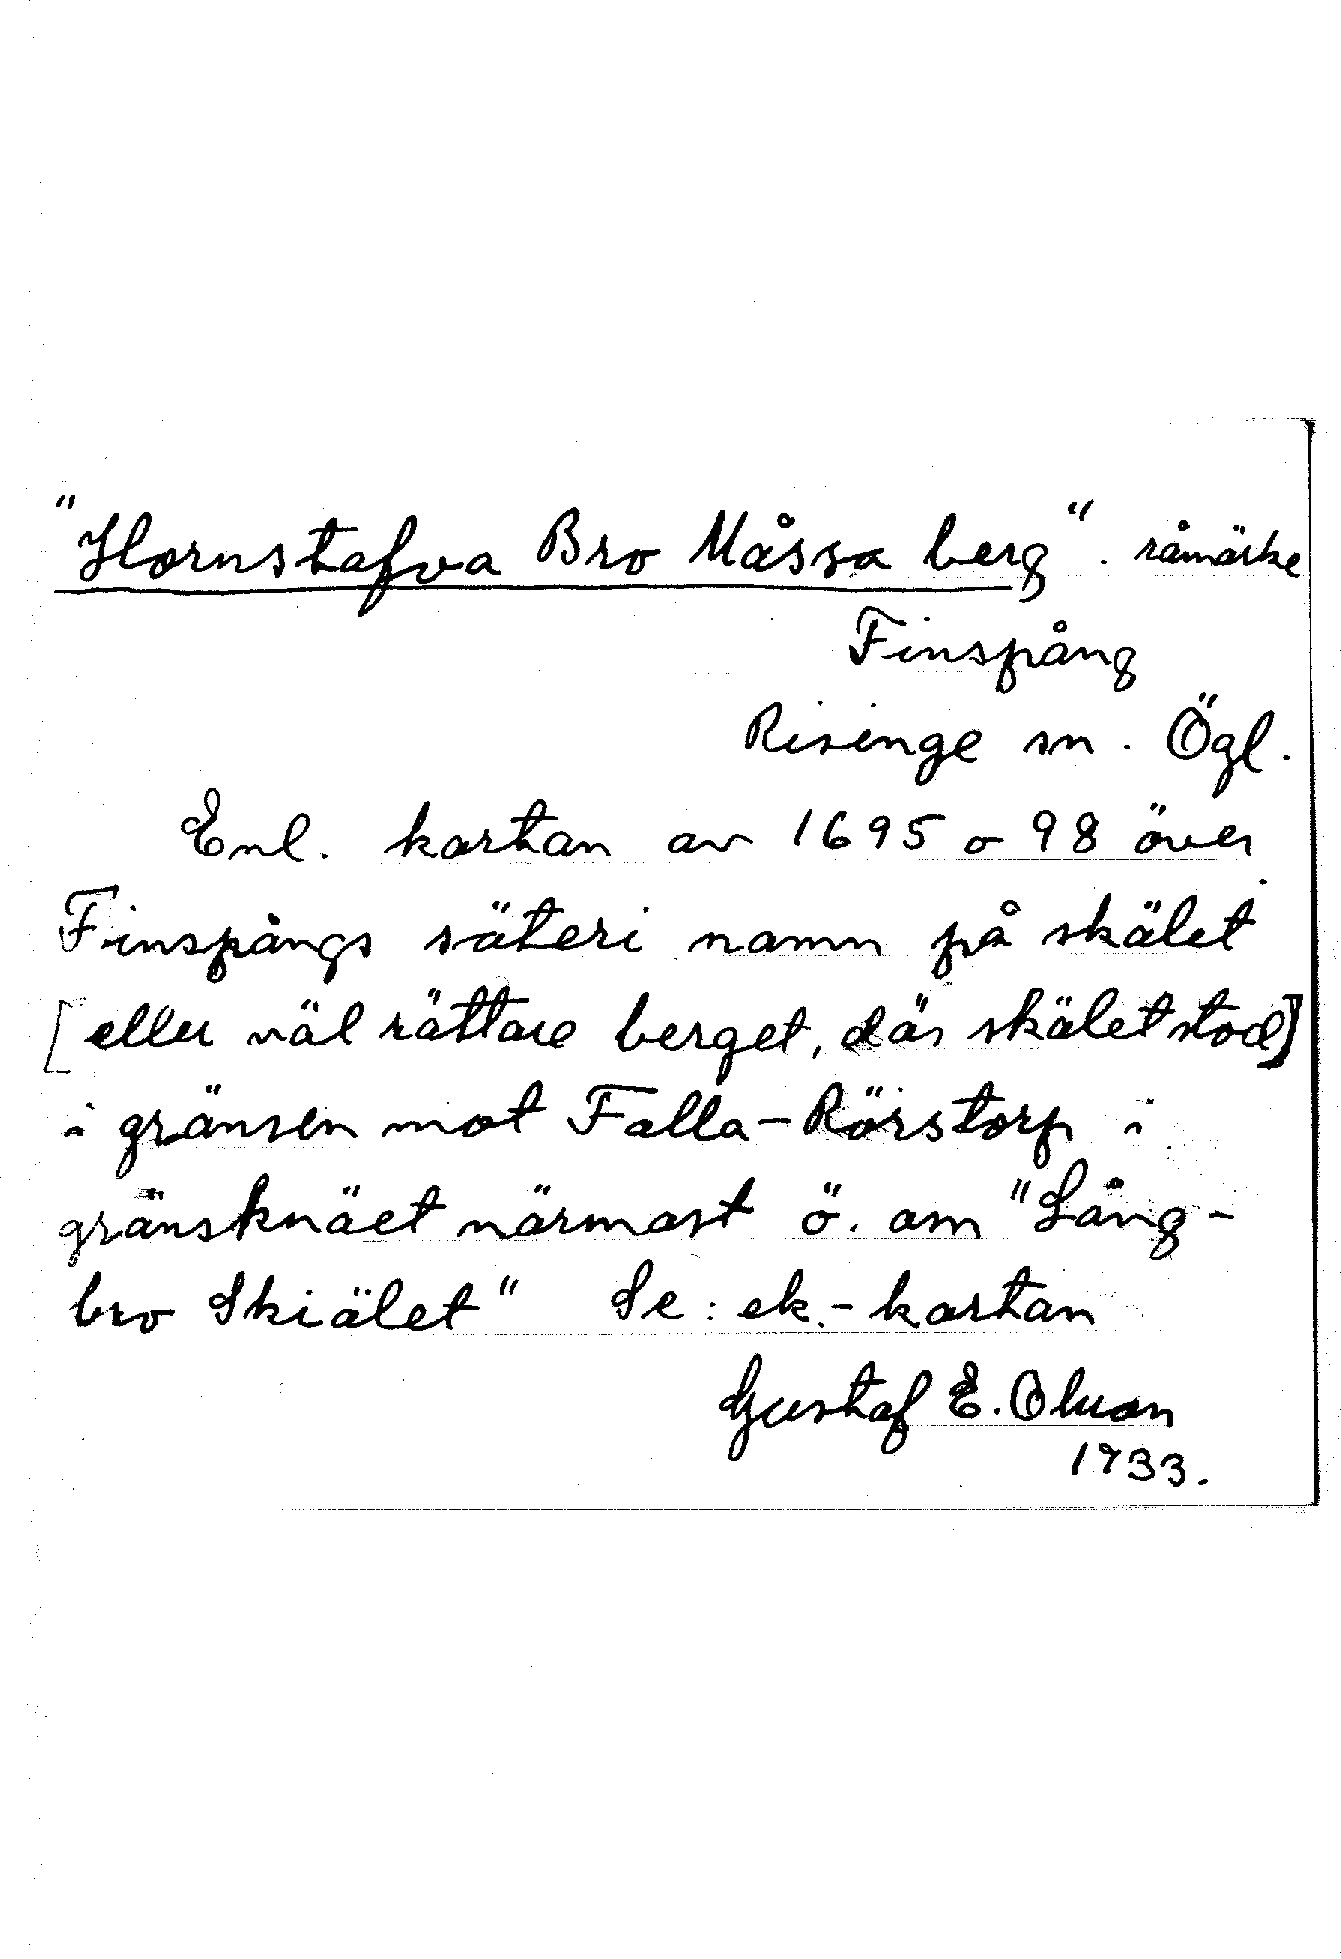 "Hornstafva Bro Måssa berg". råmärke
Finspång
Risinge sn. Ögl.
Enl. kartan av 1695 o 98 över
Finspångs säteri namn på skälet
[eller väl rättare berget, där skälet stod]
i gränsen mot Falla-Rörstorp i
gränsknäet närmast ö. om "Lång-
bro Skiälet" Se: ek.-kartan
Gustaf E. Olson
1933.